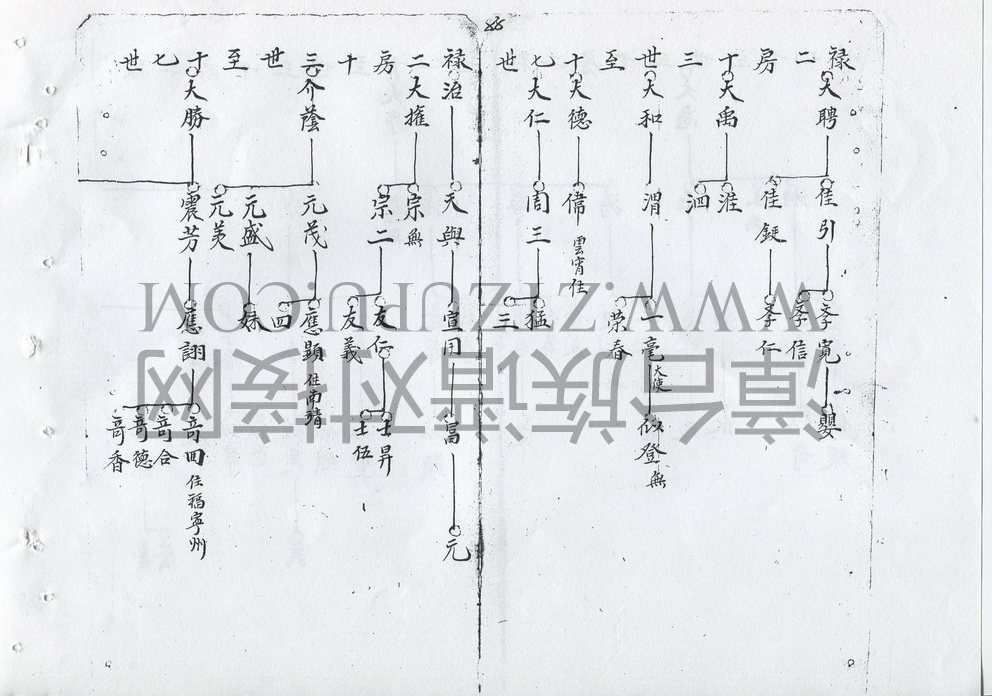 88
禄二房十三世至十七世
大聘
大禹
大和
大德
大仁
佳引
佳
淮
泗
渭
雲霄住
周三
季寬
季信
季仁
一毫
大使
荣春
猛
三
嬰
似登
無
禄二房十三世至十七世
治
大權
介蔭
大勝
天與
宗
無
宗二
元茂
元盛
元美
震芳
宣同
友仁
友義
應顯
住南靖
四
妹
應詡
富
士昇
士伍
奇回
住福寧州
奇合
奇德
奇香
元
WWW.ZTZUPU.COM
漳台族谱对接网